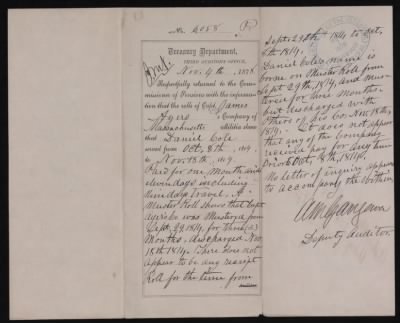 No. 6058
Treasury Department,
THIRD AUDITOR'S OFFICE,
Nov. 4th, 1878.
Respectfully returned to the Commis-
sioner of Pensions with the information
that the rolls of Capt. James
Ayers Company of
Massachusetts militia show
that Daniel Cole
served from Oct. 8th, 1814,
to Nov. 18th, 1814.
Paid for one Month and
eleven days including
travel. A
Muster Roll shows that Capt
Ayer's Co. was Mustered from
Sept. 29. 1814, for three (3)
Months, discharged Nov.
18th 1814. There does not
appear to be any receipt
Roll for the time from
Sept. 29th 1814 to Oct.
8th 1814.
Daniel Cole's name is
borne on Muster Roll from
Sept. 29th, 1814, and Mus-
tered for three Months
but discharged with
others of his Co. Nov. 18th,
1814. It does not appear
that any of the Company
received pay for any time
Prior to Oct. 8th, 1814.
No letter of inquiry appears
to accompany the within
Deputy Auditor.